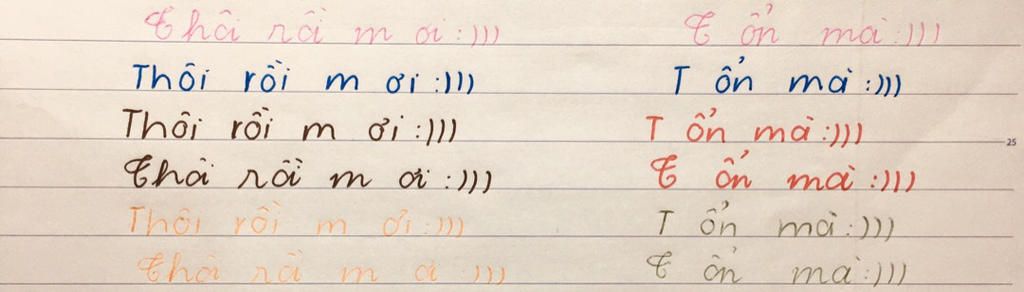 Thôi rồi m ơi :))) T ổn mà :)))
Thôi rồi m ơi :))) T ổn mà :)))
Thôi rồi m ơi :))) T ổn mà :)))
25
Thôi rồi m ơi :))) T ổn mà :)))
Thôi rồi m ơi :))) T ổn mà :)))
Thôi rồi m ơi :))) T ổn mà :)))